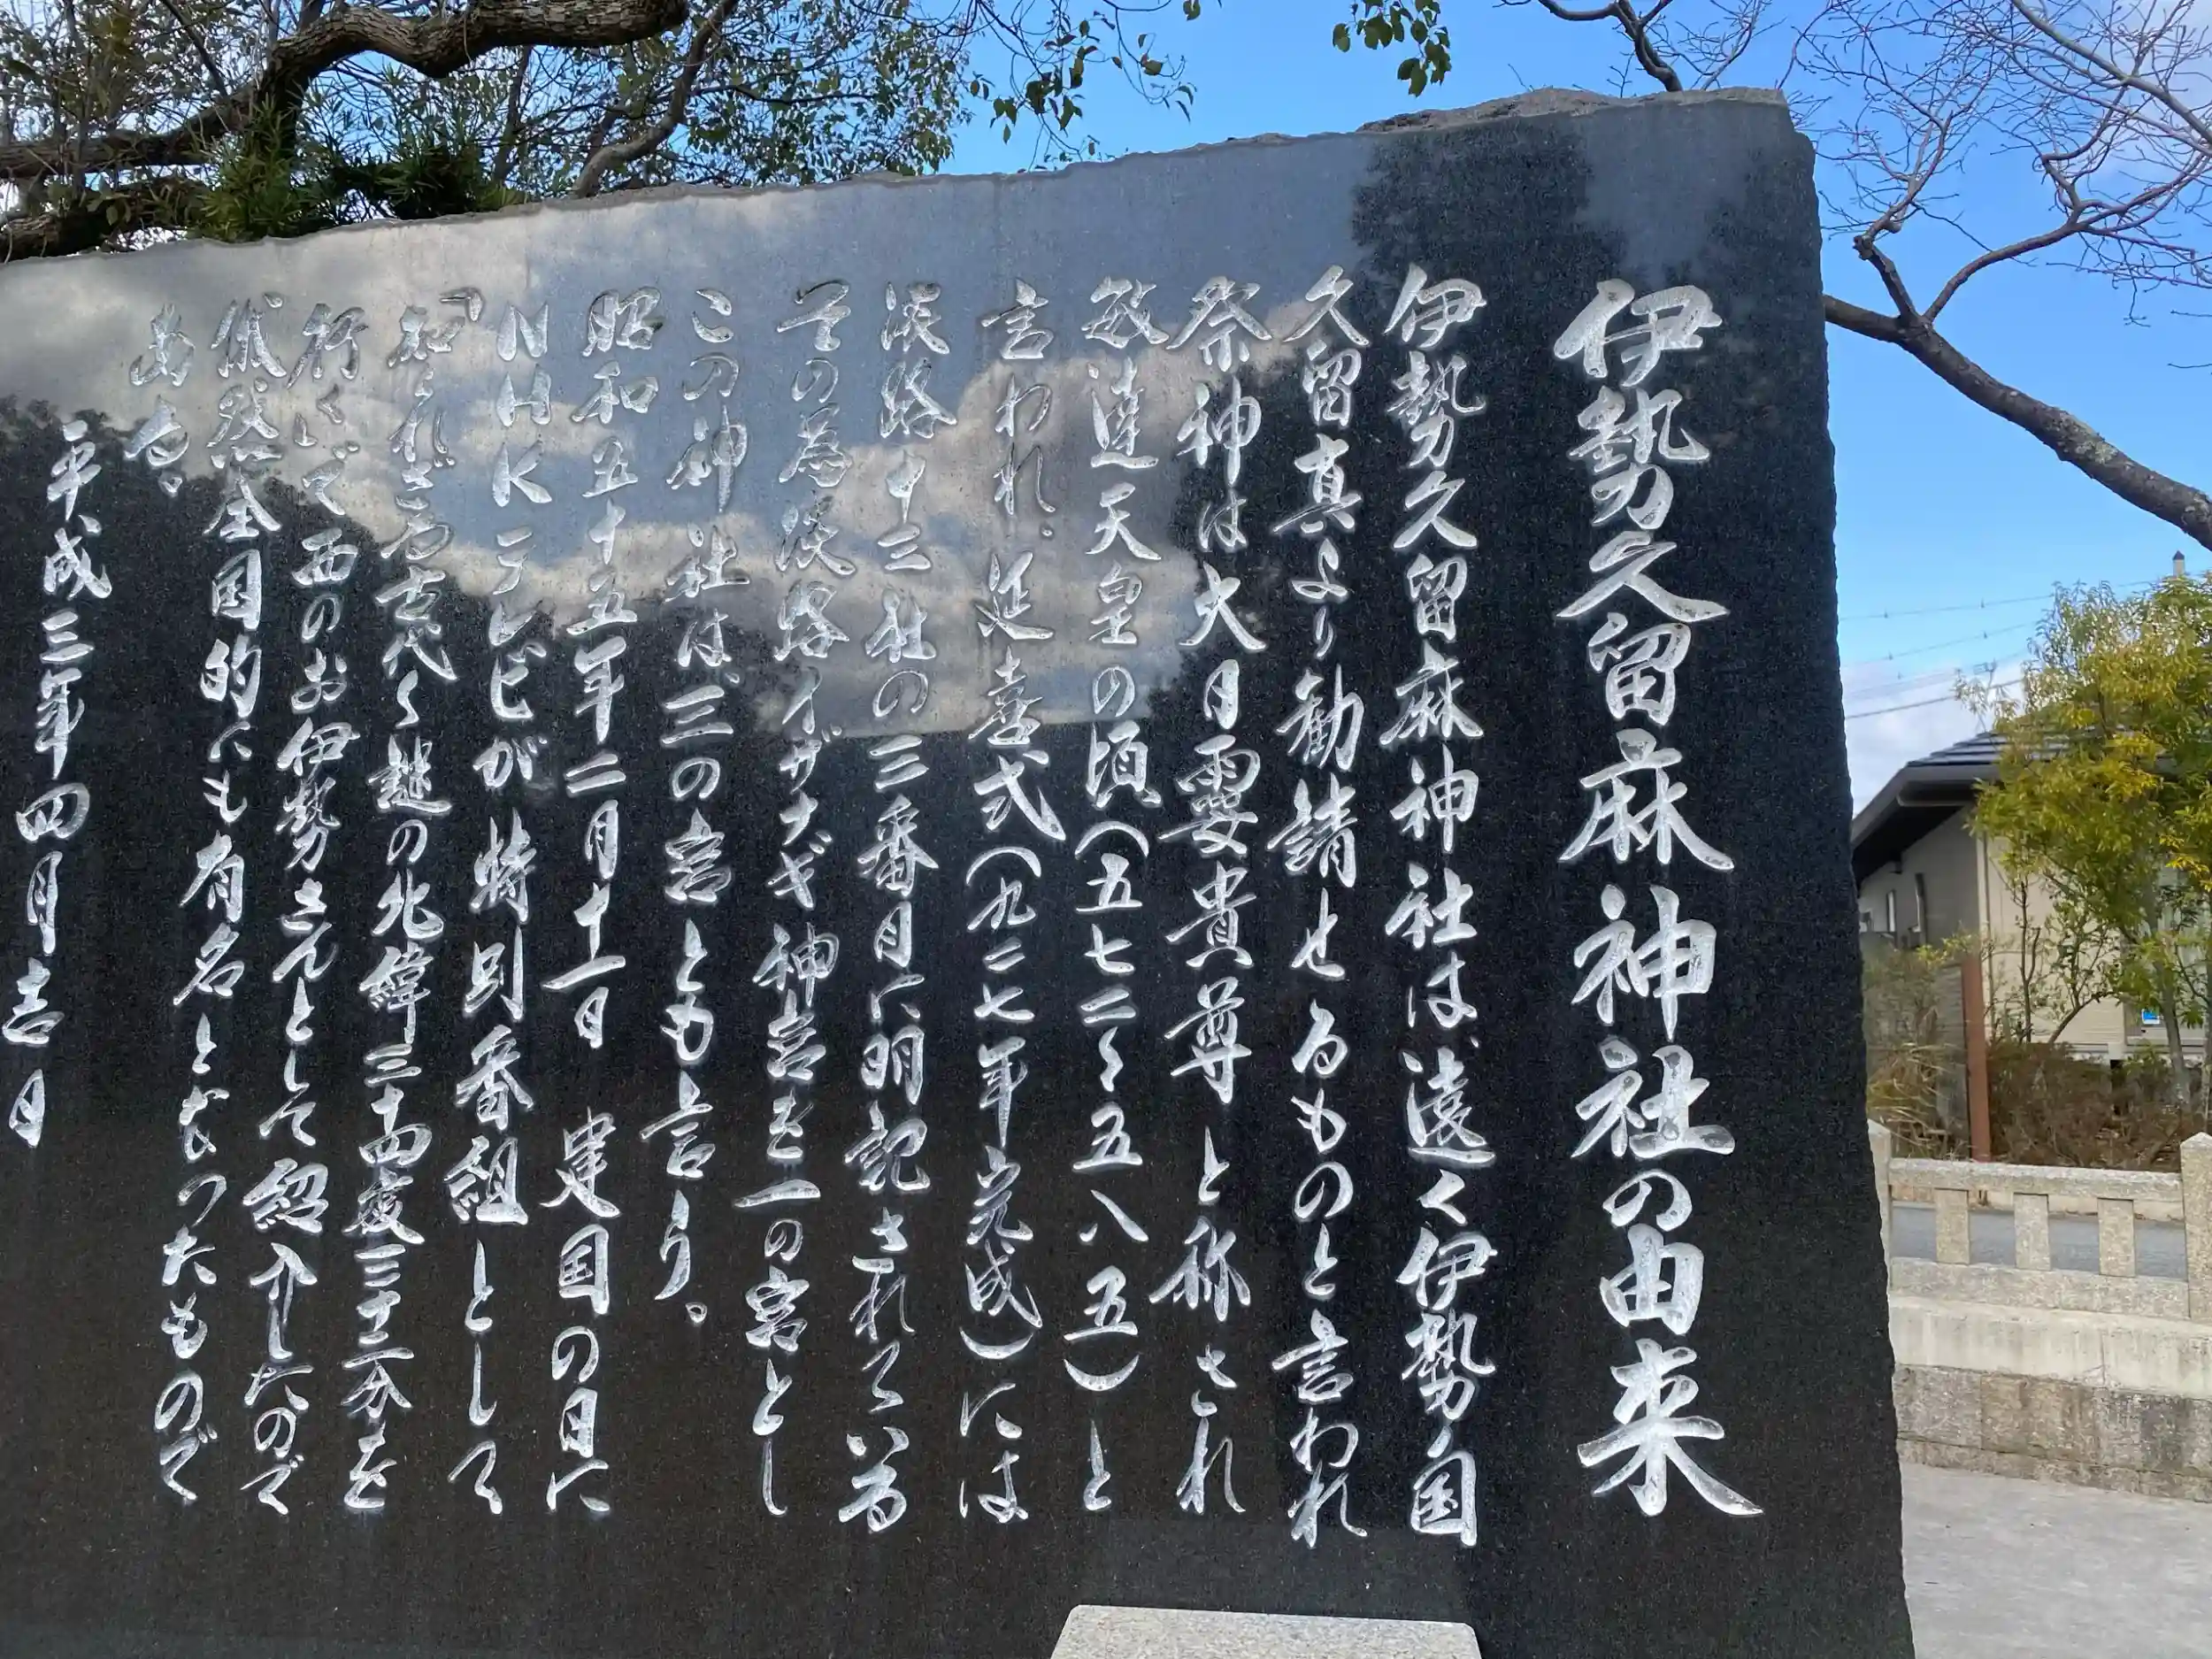 伊勢久留麻神社の由来
伊勢久留麻神社は遠く伊勢国
久留真より勧請せるものと言われ
祭神は大日孁貴尊と称され
敏達天皇の頃(五七二〜五八五)と
言われ、延喜式(九二七年完成)には
淡路十三社の三番目に明記されている
その為淡路イザナギ神宮を一の宮とし
この神社は、三の宮とも言う。
昭和五十五年二月十一日 建国の日に
NHKテレビが特別番組として
「知られざる古代〜謎の北緯三十四度三十二分を
行く」で西のお伊勢さんとして紹介したので
俄然全国的にも有名となったもので
ある。
平成三年四月吉日